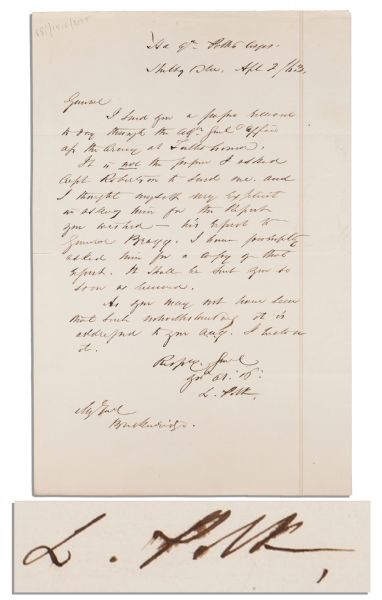 Hd Qrs Polk's Corps
Shelbyville, Apl 2/63.
General
I send you a paper received
to day through the Adjt Genl Office
of the Army at Tullahoma.
It is not the paper I asked
Capt Robertson to send me, and
I thought myself very explicit
in asking him for the Report
you wished - his report to
General Bragg. I have promptly
asked him for a copy of that
report. It shall be sent you so
soon as received.
As you may not have seen
that sent notwithstanding it is
addressed to your I enclose
it.
Respy Genl
Yr ob. st.
L. Polk,
Maj Genl
Breckinridge.
L. Polk,